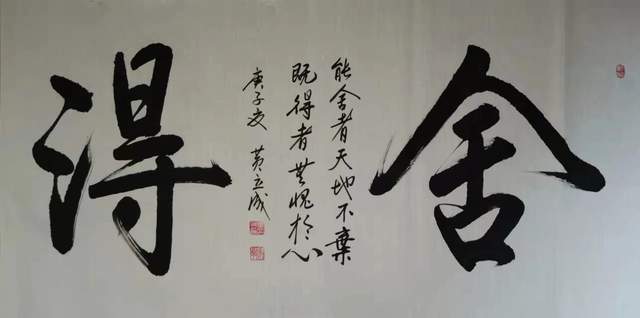 舍
能舍者天地不棄
既得者無愧於心
得
庚子夏 黄立成